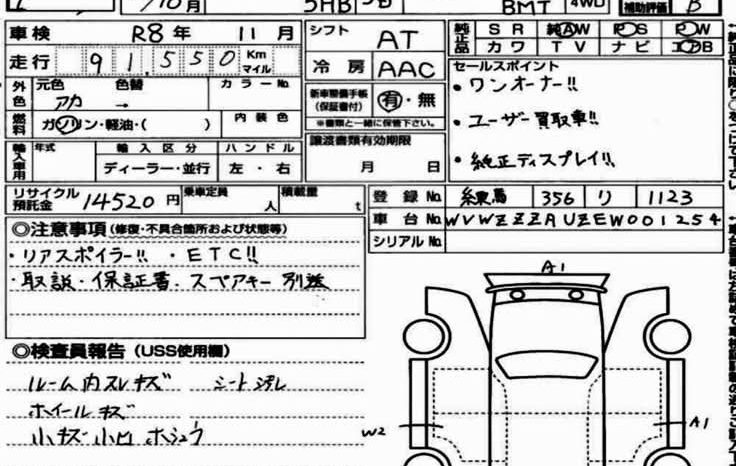 10月 5HB BMT 4WD 補助評価 B
車検 R8年 11月
シフト AT
純正品 SR 純AW PS PW
カワ TV ナビ エアB
走行 91,550 Km マイル
冷房 AAC
セールスポイント
・ワンオーナー!!
・ユーザー買取車!!
・純正ディスプレイ!!
外色 元色 色替 カラーNo.
アカ →
新車整備手帳(保証書付) 有・無
※書類と一緒に保管下さい。
燃料 ガソリン・軽油・( ) 内装色
譲渡書類有効期限
月 日
輸入車用 年式 輸入区分 ハンドル
ディーラー・並行 左・右
リサイクル預託金 14520円 乗車定員 人 積載量 t
登録No. 練馬 356 り 1123
車台No. WVWZZZAUZEW001254
シリアルNo.
◎注意事項(修復・不具合箇所および状態等)
・リアスポイラー!! ・ETC!!
・取説・保証書・スペアキー 別送
◎検査員報告(USS使用欄)
ルーム内スレキズ シート汚レ
ホイールキズ
小キズ小凹ホシュウ
A1
W2
A1